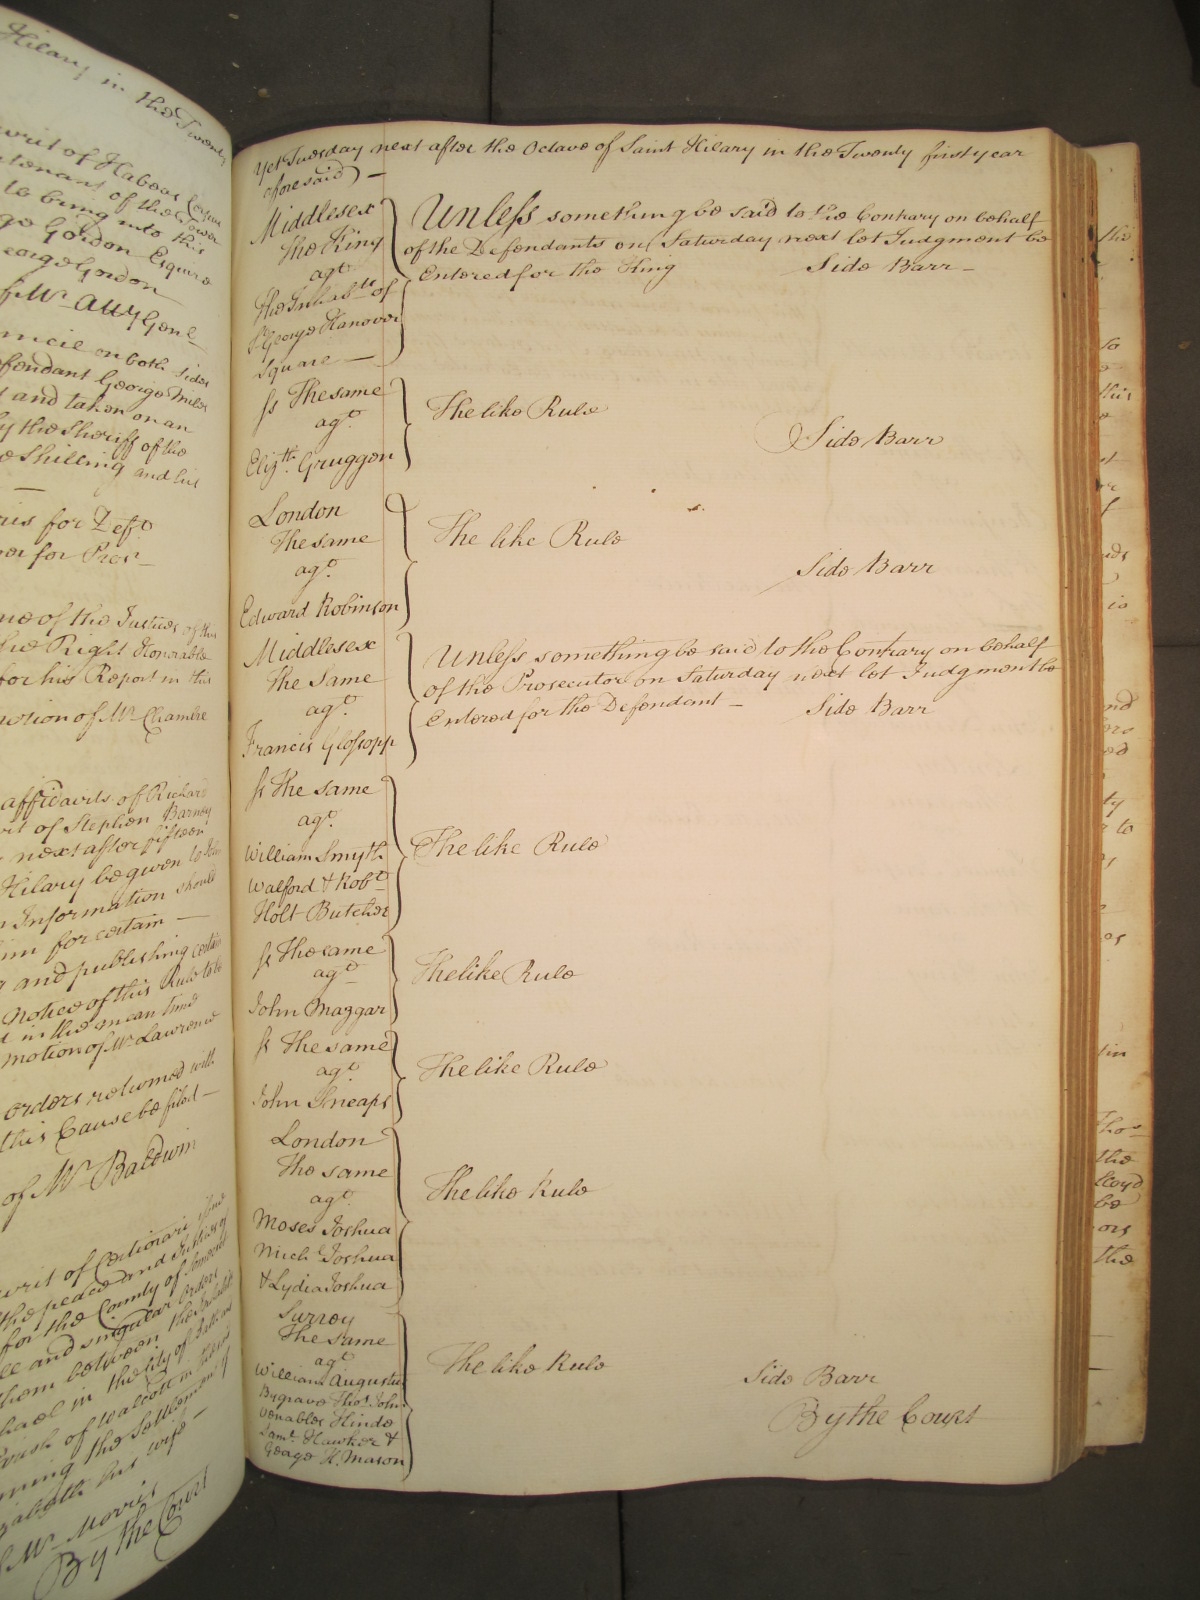 Hilary in the Twenty
writ of Habeas Corpus
tenant of the Tower
to bring into this
go Gordon Esquire
eorge Gordon
f Mr. Atty Genl
uncil on both sides
fendant George
and taken on an
y the Sheriff of the
e Shilling and his
ris for Deft.
er for Pros
ne of the Justices of this
he Right Honorable
for his Report in this
otion of Mr. Chambre
affidavits of Richard
it of Stephen Barney
next after fifteen
Hilary be given to
Information should
im for certain
and publishing certain
notice of this Rule to be
in the mean time
motion of Mr. Lawrence
orders returned with
this Cause be filed
of Mr. Baldwin
writ of Certiorari
the peace and Justices of
for the County of Somerset
ll and singular Orders
them between the
hael in the City of Bath and
arish of Walcott in the
ning the Settlement of
zabeth his wife
Mr. Morris
By the Court
Yet Tuesday next after the Octave of Saint Hilary in the Twenty first year
aforesaid)
Middlesex
The King
agt.
The Inhabts. of
St. George Hanover
Square
Unless something be said to the Contrary on behalf
of the Defendants on Saturday next let Judgment be
Entered for the King Side Barr
Ss The same
agt.
Elizth. Gruggen
The like Rule
Side Barr
London
The same
agt.
Edward Robinson
The like Rule
Side Barr
Middlesex
The Same
agt.
Francis Glossopp
Unless something be said to the Contrary on behalf
of the Prosecutor on Saturday next let Judgment be
Entered for the Defendant Side Barr
Ss The same
agt.
William Smyth
Walford & Robt.
Holt Butcher
The like Rule
Ss The same
agt.
John Maggar
The like Rule
Ss The same
agt.
John Sneaps
The like Rule
London
The same
agt.
Moses Joshua
Mich. Joshua
& Lydia Joshua
The like Rule
Surrey
The same
agt.
William Augustus
Bygrave Thos. John
Venables Hinde
Saml. Hawker &
George H. Mason
The like Rule
Side Barr
By the Court